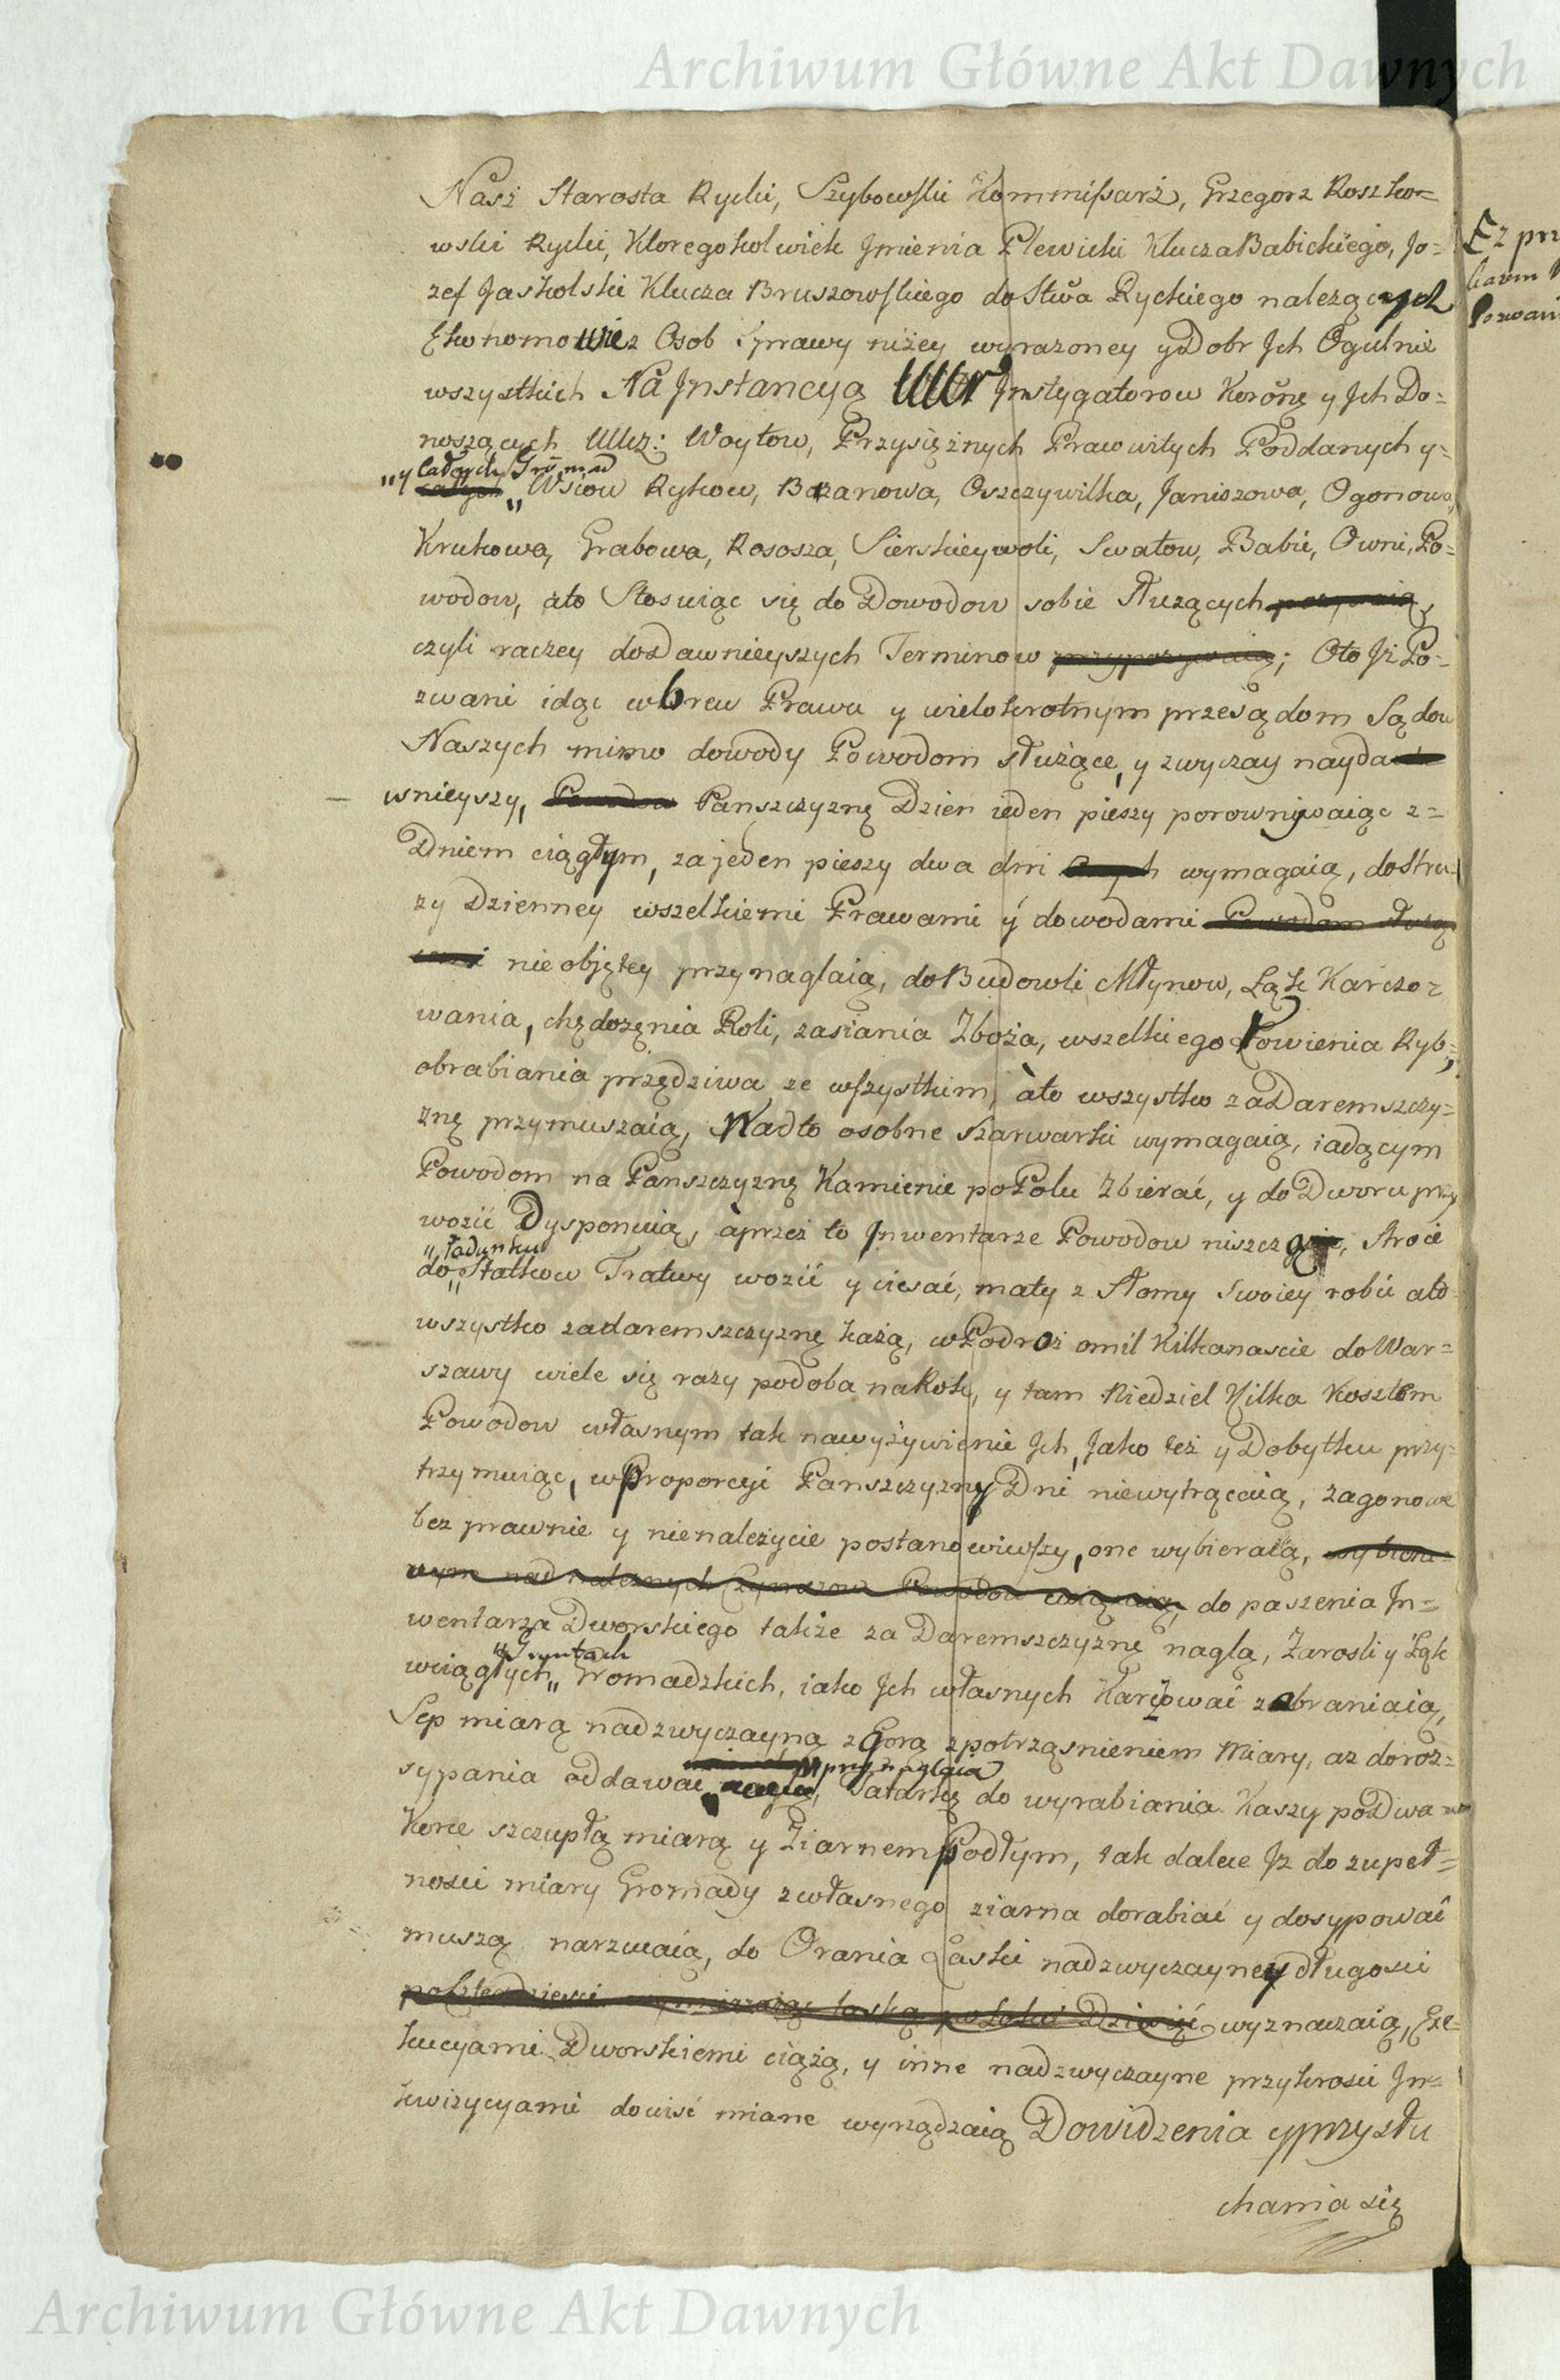 Archiwum Główne Akt Dawnych
Nasz Starosta Rycki, Szybowski Kommissarz, Grzegorz Roszko=
wski Rycki, Ktoregokolwiek Jmienia Plewicki Klucza Babickiego, Jo=
zef Jaskolski Klucza Bruszowskiego do Stwa Ryckiego należących
Ekonomowie z Osob Sprawy niżey wyrażoney y Dobr Jch Ogulnie
wszystkich Na Jnstancyą UUr Jnstygatorow Koronę y Jch Do=
noszących UUcz: Woytow, Przysiężnych Prawowitych Poddanych y=
"y całych Gromad
całych „ Wsiow Rykow, Bazanowa, Oszczywilka, Janiszowa, Ogonowa,
Krukowa, Grabowa, Rososza, Sierskieywoli, Swatow, Babic, Owni, Po=
wodow, ato Stosuiąc się do Dowodow sobie Służących
czyli raczey do Dawnieyszych Terminow przypozywaią; Oto Jż Po=
zwani idąc wbrew Prawu y wielokrotnym przesądom Sądow
Naszych mimo dowody Powodom służące, y zwyczay nayda
wnieyszy, Powodow Panszczyznę Dzień ieden pieszy porownywaiąc z=
Dniem ciągłym, za jeden pieszy dwa dni wymagaią, do Stru=
ży Dzienney wszelkiemi Prawami y dowodami Powodom służą
cemi nieobjętey przynaglaią, do Budowli Młynow, Łąk Karczo=
wania, chędożęnia Roli, zasiania Zboża, wszelkiego Łowienia Ryb,
obrabiania przędziwa ze wszystkim, ato wszystko za Daremszczy=
znę przymuszaią, Nadto osobne szarwarki wymagaią, iadącym
Powodom na Panszczyznę Kamienie po Polu Zbierać, y do Dworu przy
wozić Dysponuią, aprzez to Jnwentarze Powodow niszczą,
"ładunku
do „ Statkow Tratwy wozić y ciesać, maty z Słomy Swoiey robić ato
wszystko zadaremszczyznę każą, w Podroż o mil Kilkanascie do War=
szawy wiele się razy podoba na Rok, y tam Niedziel Kilka Kosztem
Powodow własnym tak na wyżywienie Jch, Jako też y Dobytku przy=
trzymuiąc, w Proporcyi Panszczyzny Dni niewytrącaią, zagonowe
bez prawnie y nienależycie postanowiwszy, one wybieraią,
do paszenia Jn=
wentarza Dworskiego także za Daremszczyznę naglą, Zarosli y Łąk
"Gruntach
wciągłych „ Gromadzkich, iako Jch własnych Karczować zabraniaią,
Sep miarą nadzwyczayną z Gorą z potrząsnieniem Miary, aż do roz=
przynaglaią
sypania oddawać, Tatarkę do wyrabiania Kaszy po Dwa
Korce szczupłą miarą y Ziarnem Podłym, tak dalece Jż do zupeł=
ności miary Gromady z własnego ziarna dorabiać y dosypować
muszą narzucaią, do Orania Laski nadzwyczayney długości
wyznaczaią, Exe=
kucyami Dworskiemi ciążą, y inne nadzwyczayne przykrosci Jn=
kwizycyami dowisć miane wyrządzaią Do Widzenia y przysłu
chania się
Archiwum Główne Akt Dawnych